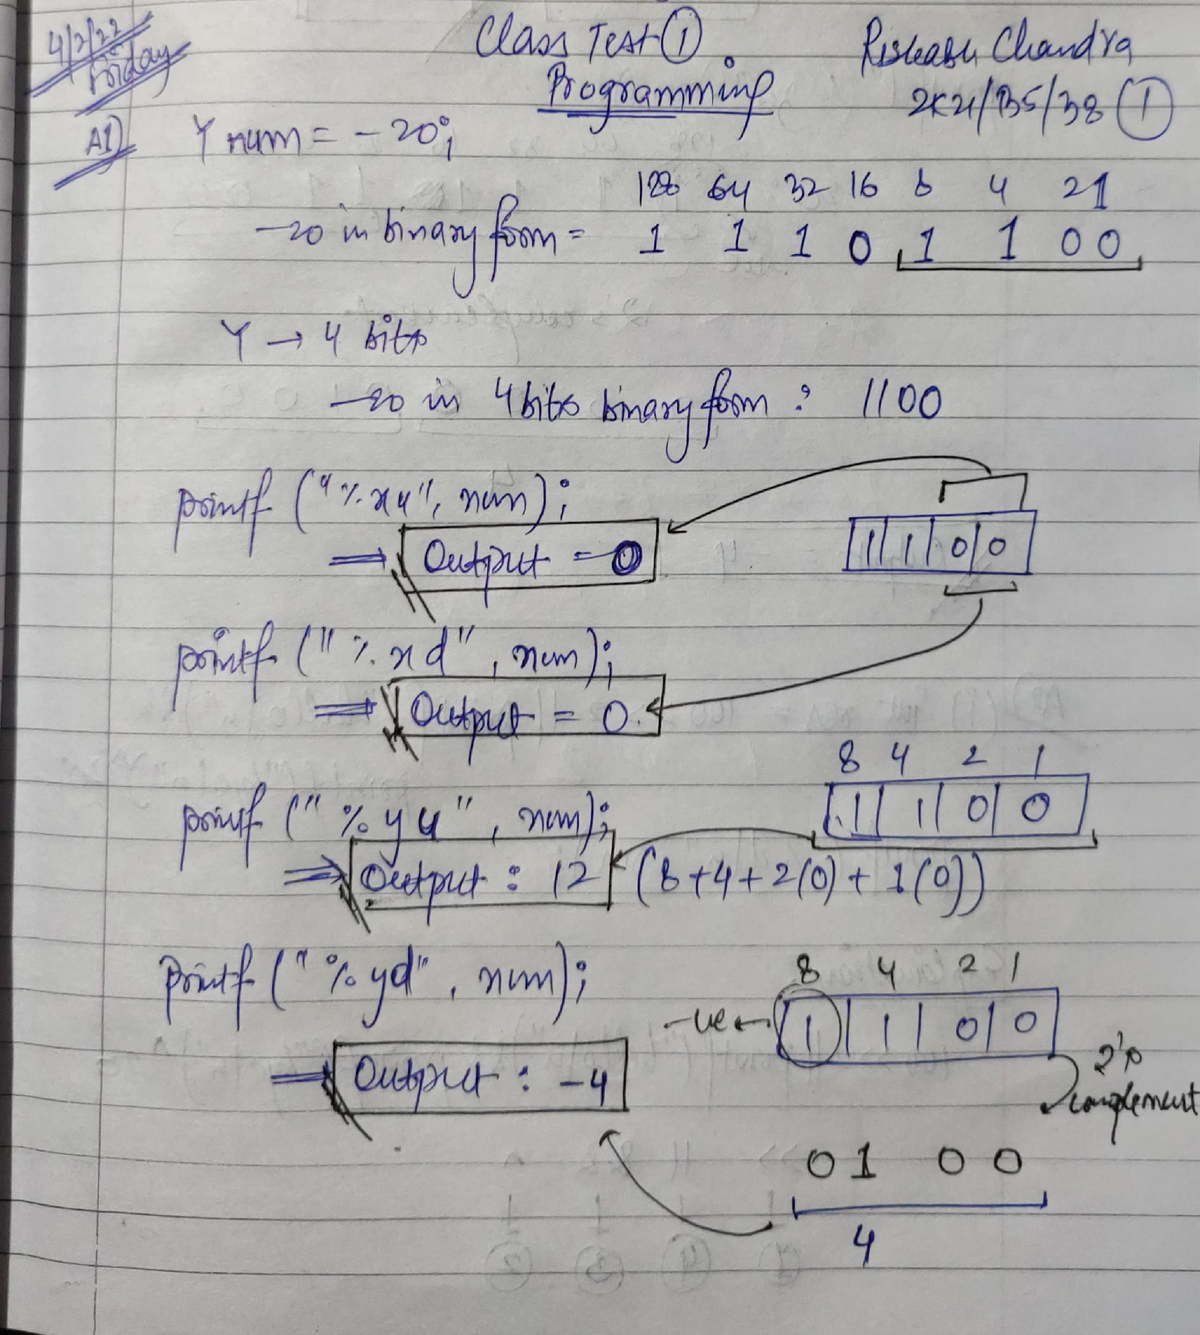 4/2/22 Class Test ① Rishabh Chandra
Friday Programming 2K21/B5/38 ①
A1) Y num = -20;
128 64 32 16 8 4 2 1
-20 in binary form = 1 1 1 0 1 1 0 0
Y → 4 bits
-20 in 4 bits binary form : 1100
printf ("%xu", num);
⇒ Output = 0 1 1 0 0
printf ("%xd", num);
⇒ Output = 0.
8 4 2 1
printf ("%yu", num); 1 1 0 0
⇒ Output : 12 (8+4+2(0)+1(0))
printf ("%yd", num); 8 4 2 1
-ve ← 1 1 0 0
⇒ Output : -4 2's complement
0 1 0 0
4